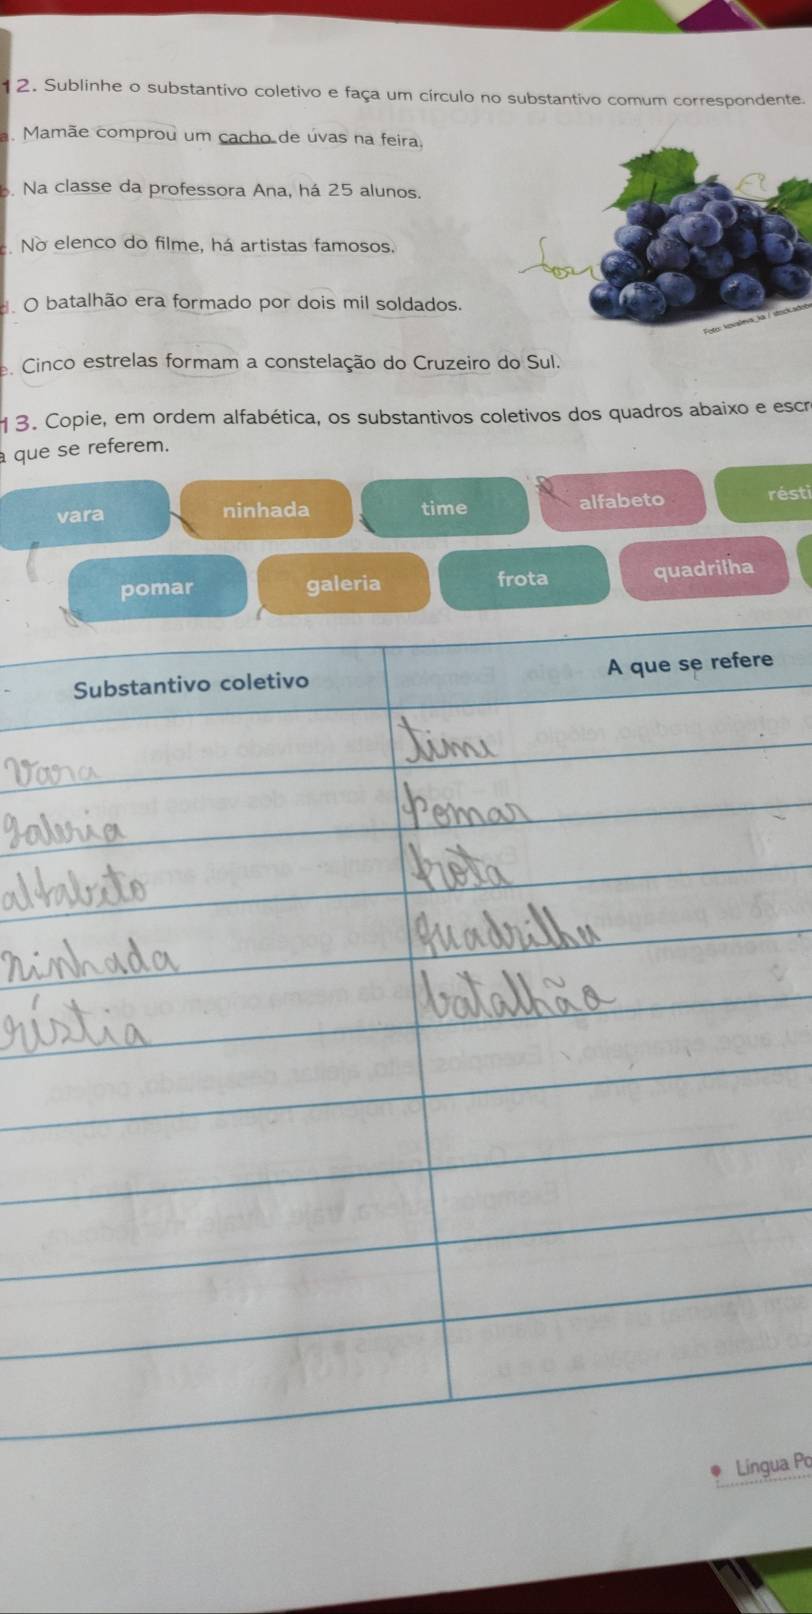 12. Sublinhe o substantivo coletivo e faça um círculo no substantivo comum correspondente.
a. Mamãe comprou um cacho de uvas na feira.
b. Na classe da professora Ana, há 25 alunos.
c. No elenco do filme, há artistas famosos.
d. O batalhão era formado por dois mil soldados.
Foto: kovaleva_ka / stockadobe
e. Cinco estrelas formam a constelação do Cruzeiro do Sul.
13. Copie, em ordem alfabética, os substantivos coletivos dos quadros abaixo e escr
a que se referem.
vara ninhada time alfabeto résti
pomar galeria frota quadrilha
Substantivo coletivo A que se refere
Vara time
galeria Pomar
alfabeto frota
ninhada quadrilha
réstia batalhão
Língua Po